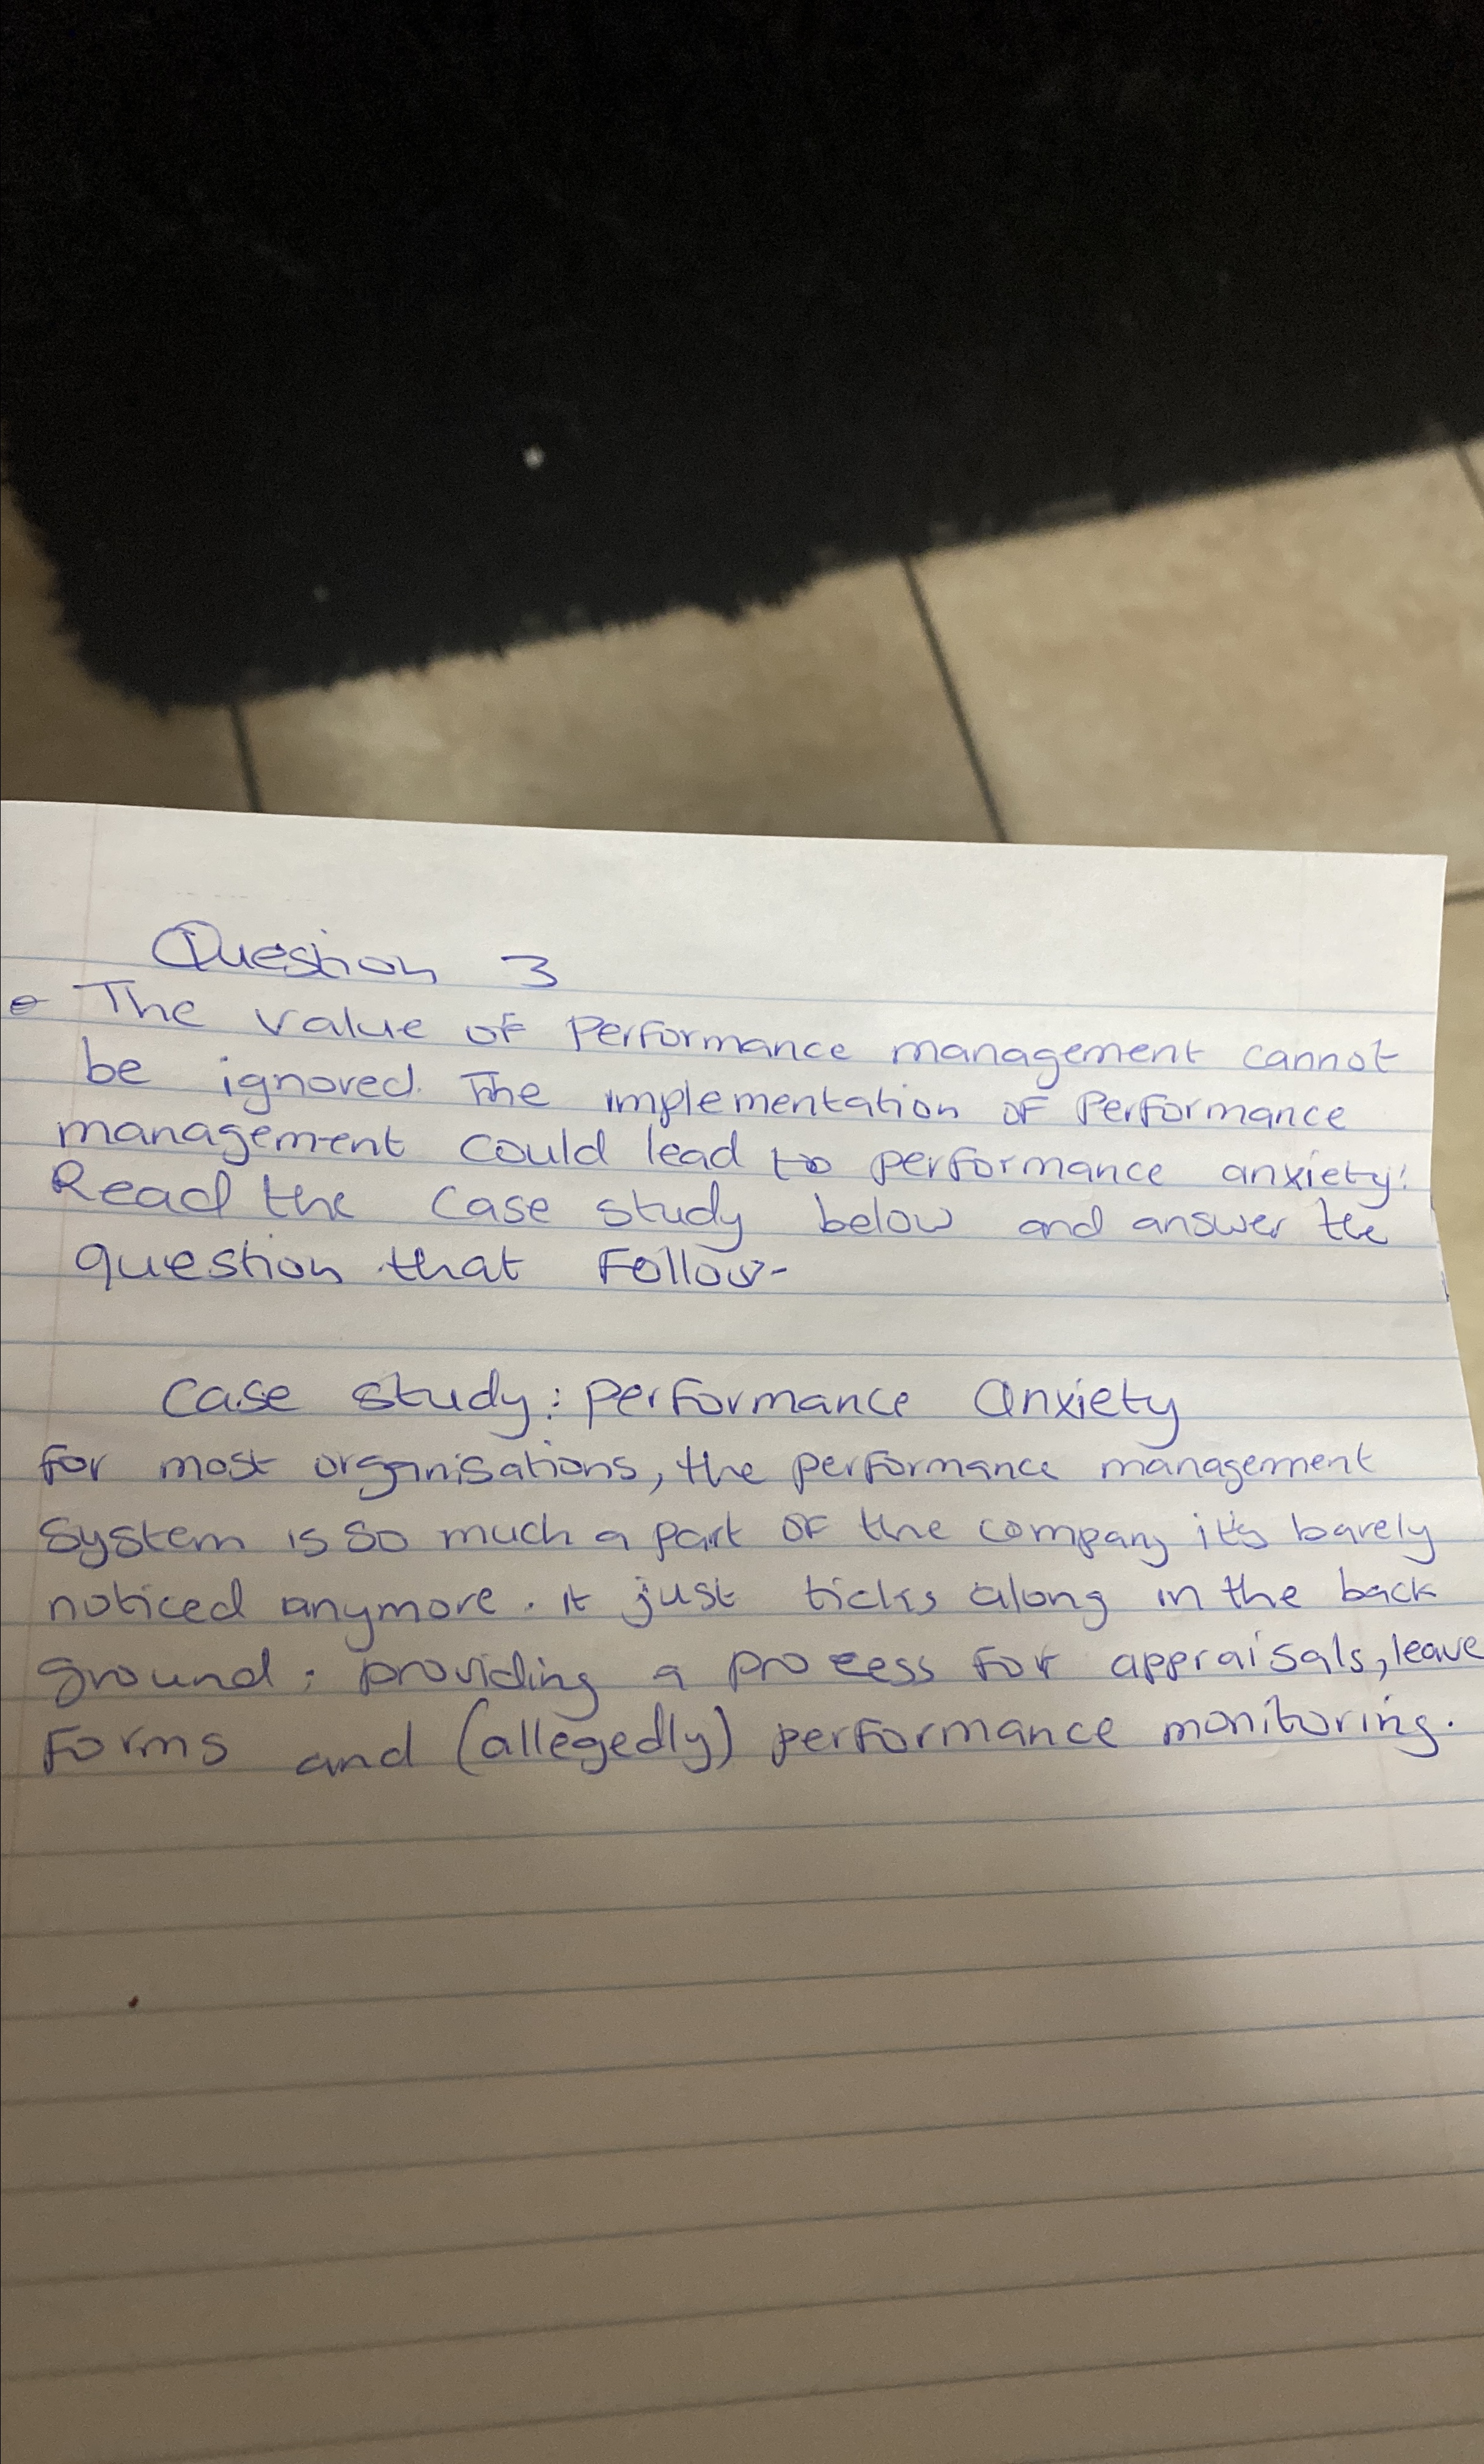 Question 3
The value of performance management cannot
be ignored. The implementation of Performance
management could lead to performance anxiety!
Read the case study below and answer the
question that follow-
Case study: performance anxiety
for most organisations, the performance management
system is so much a part of the company it's barely
noticed anymore. it just ticks along in the back
ground: providing a process for appraisals, leave
forms and (allegedly) performance monitoring.